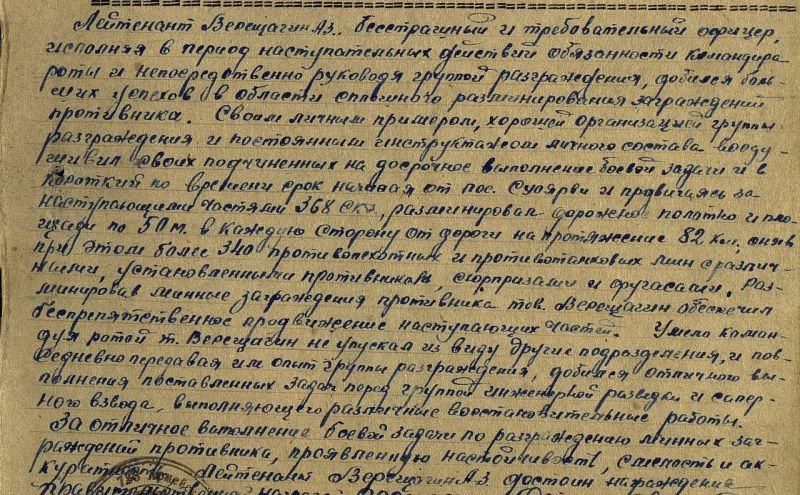 Лейтенант Верещагин А.З. бесстрашный и требовательный офицер,
исполняя в период наступательных действий обязанности командира
роты и непосредственно руководя группой разграждения, добился боль-
ших успехов в области сплошного разминирования заграждений
противника. Своим личным примером, хорошей организацией группы
разграждения и постоянным инструктажом личного состава вооду-
шивил своих подчиненных на досрочное выполнение боевой задачи и в
короткий по времени срок начиная от пос. Суоярви и продвигаясь за
наступающими частями 368 СКД, разминировал дорожное полотно и пло-
щади по 50 м. в каждую сторону от дороги на протяжение 82 км, сняв
при этом более 340 противопехотных и противотанковых мин с различ-
ными, установленными противником, сюрпризами и фугасами. Раз-
минировав минные заграждения противника тов. Верещагин обеспечил
беспрепятственное продвижение наступающих частей. Умело коман-
дуя ротой т. Верещагин не упускал из виду другие подразделения, и пов-
седневно передавая им опыт группы разграждения, добился отличного вы-
полнения поставленных задач перед группой инженерной разведки и сапер-
ного взвода, выполняющего различные восстановительные работы.
За отличное выполнение боевой задачи по разграждению минных заг-
раждений противника, проявленную настойчивость, смелость и ак-
куратность Лейтенант Верещагин А.З. достоин награждения